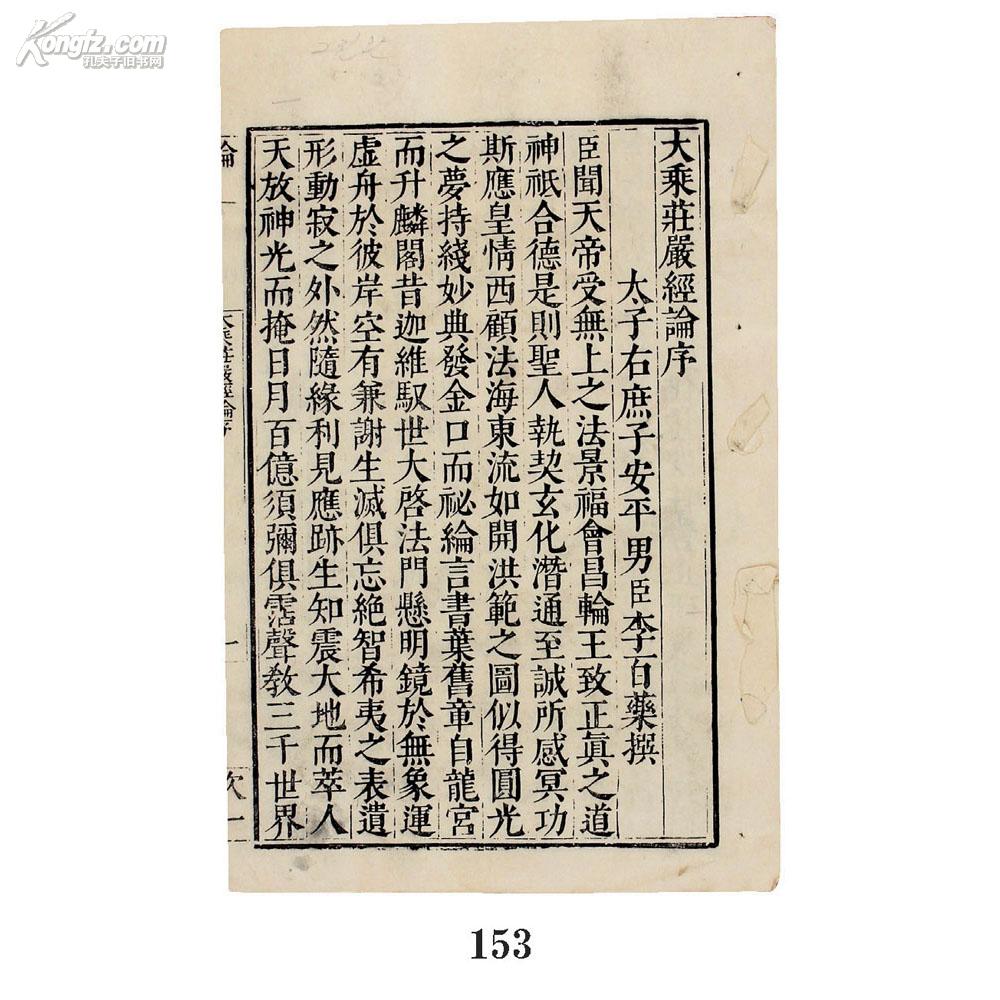 Kongfz.com
孔夫子旧书网
大乘莊嚴經論序
太子右庶子安平男臣李百藥撰
臣聞天帝受無上之法景福會昌輪王致正眞之道
神祇合德是則聖人執契玄化潛通至誠所感冥功
斯應皇情西顧法海東流如開洪範之圖似得圓光
之夢持綫妙典發金口而祕綸言書葉舊章自龍宮
而升麟閣昔迦維馭世大啓法門懸明鏡於無象運
虛舟於彼岸空有兼謝生滅俱忘絶智希夷之表遺
形動寂之外然隨緣利見應跡生知震大地而萃人
天放神光而掩日月百億須彌俱霑聲敎三千世界
論
大乘莊嚴經論序
一
欠一
153